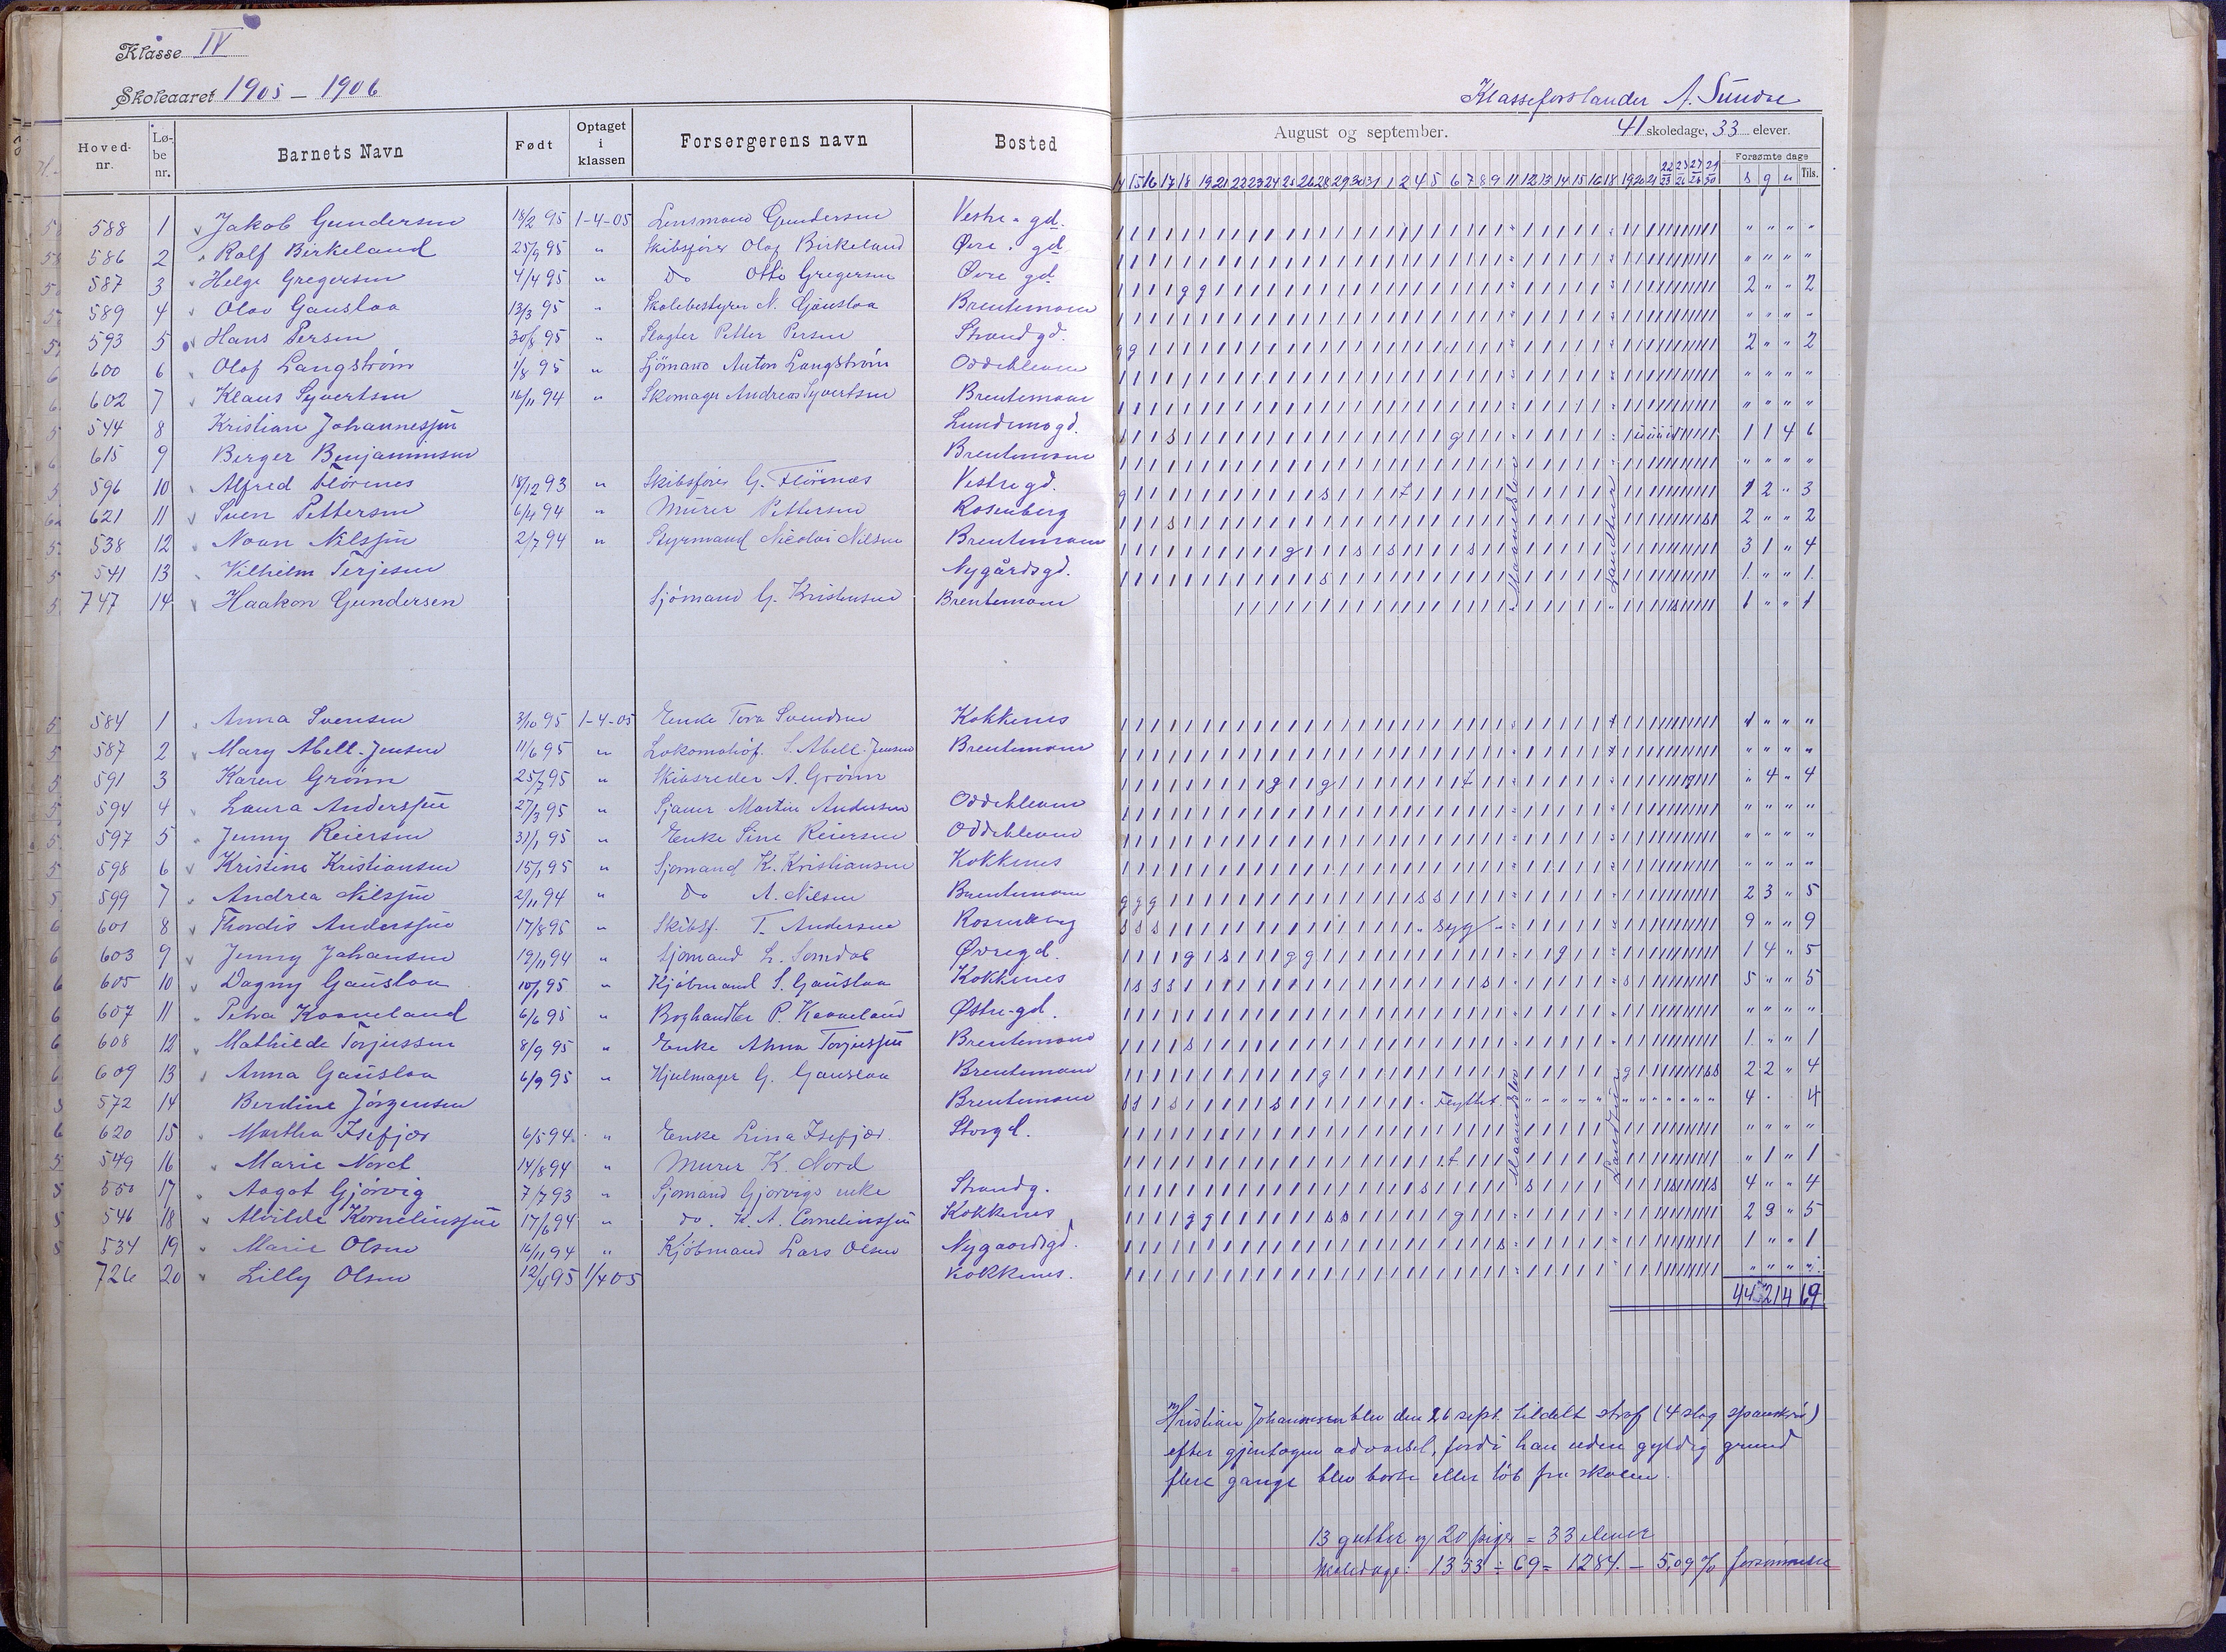 Klasse IV
Skoleaaret 1905 - 1906
Klasseforstander A. Sunde
Hoved-nr. Løbe nr. Barnets Navn Født Optaget i klassen Forsørgerens navn Bosted
August og september. 41 skoledage, 33 elever.
Forsømte dage
s g u Tils.
14 15 16 17 18 19 21 22 23 24 25 26 28 29 30 31 1 2 4 5 6 7 8 9 11 12 13 14 15 16 18 19 20 21 22 23 25 26 27 28 29 30
588 1 Jakob Gundersen 18/2 95 1-4-05 Lensmand Gundersen Vestre gd. " " " "
586 2 Rolf Birkeland 25/9 95 " Skibsfører Olaf Birkeland Øvre gd " " " "
587 3 Helge Gregersen 4/4 95 " Do Otto Gregersen Øvre gd 2 " " 2
589 4 Olav Gauslaa 13/3 95 " Skolebestyrer N. Gauslaa Brentemoen " " " "
593 5 Hans Persen 30/8 95 " Slagter Petter Persen Strandgd. 2 " " 2
600 6 Olaf Langström 1/8 95 " Sjömand Anton Langström Oddekleven " " " "
602 7 Klaus Syvertsen 16/11 94 " Skomager Andreas Syvertsen Brentemoen " " " "
544 8 Kristian Johannessen Lundemogd. 1 1 4 6
615 9 Berger Benjaminsen Brentemoen " " " "
596 10 Alfred Flörenes 18/12 93 " Skibsfører G. Flörenæs Vestregd. 1 2 " 3
621 11 Sven Pettersen 6/4 94 " Murer Pettersen Rosenberg 2 " " 2
538 12 Noan Nilssen 2/7 94 " Styrmand Nicolai Nilsen Brentemoen 3 1 " 4
541 13 Vilhelm Terjesen Nygårdsgd. 1. " " 1.
747 14 Haakon Gundersen Sjömand G. Kristensen Brentemoen 1 " " 1
584 1 Anna Svensen 3/10 95 1-4-05 Enke Tora Svendsen Kokkenes " " " "
587 2 Mary Abell-Jensen 11/6 95 " Lokomotivf. S. Abell-Jensen Brentemoen " " " "
591 3 Karen Grönn 25/7 95 " Skibsreder A. Grönn " 4 " 4
594 4 Laura Anderssen 27/3 95 " Sjauer Martin Andersen Oddekleven " " " "
597 5 Jenny Reiersen 31/1 95 " Enke Sine Reiersen Oddekleven " " " "
598 6 Kristine Kristiansen 15/1 95 " Sjömand K. Kristiansen Kokkenes " " " "
599 7 Andrea Nilssen 2/11 94 " Do A. Nilsen Brentemoen 2 3 " 5
601 8 Thordis Anderssen 17/8 95 " Skibsf. T. Andersen Rosenberg syg 9 " " 9
603 9 Jenny Johansen 19/11 94 " Sjömand L. Somdal Øvregd. 1 4 " 5
605 10 Dagny Gauslaa 10/1 95 " Kjöbmand S. Gauslaa Kokkenes 5 " " 5
607 11 Petra Kaaveland 6/6 95 " Boghandler P. Kaaveland Østregd. " " " "
608 12 Mathilde Torjussen 8/9 95 " Enke Anna Torjussen Brentemoen 1 " " 1
609 13 Anna Gauslaa 6/9 95 " Hjulmager G. Gauslaa Brentemoen 2 2 " 4
572 14 Berdine Jörgensen Brentemoen Flyttet. 4 4
620 15 Martha Isefjær 6/5 94 " Enke Lina Isefjær. Storgd. " " " "
549 16 Marie Nord 14/8 94 " Murer K. Nord " 1 " 1
550 17 Aagot Gjörvig 7/7 93 " Sjömand Gjörvigs enke Strandg. 4 " " 4
546 18 Alvilde Korneliussen 17/6 94 " do. K. A. Corneliussen Kokkenes 2 3 " 5
534 19 Marie Olsen 16/11 94 " Kjöbmand Lars Olsen Nygaardsgd. 1 " " 1
726 20 Lilly Olsen 12/4 95 1/4 05 Kokkenes. " " " "
Maanedslov
Landtur
Maanedslov
Landtur
44 21 4 69
Kristian Johannesen blev den 26 sept. tildelt straf (4 slag spanskrör)
efter gjentagen advarsel, fordi han uden gyldig grund
flere gange blev borte eller löb fra skolen.
13 gutter og 20 piger = 33 elever
Skoledage: 1353 ÷ 69 = 1284. - 5,09 % forsömmelse